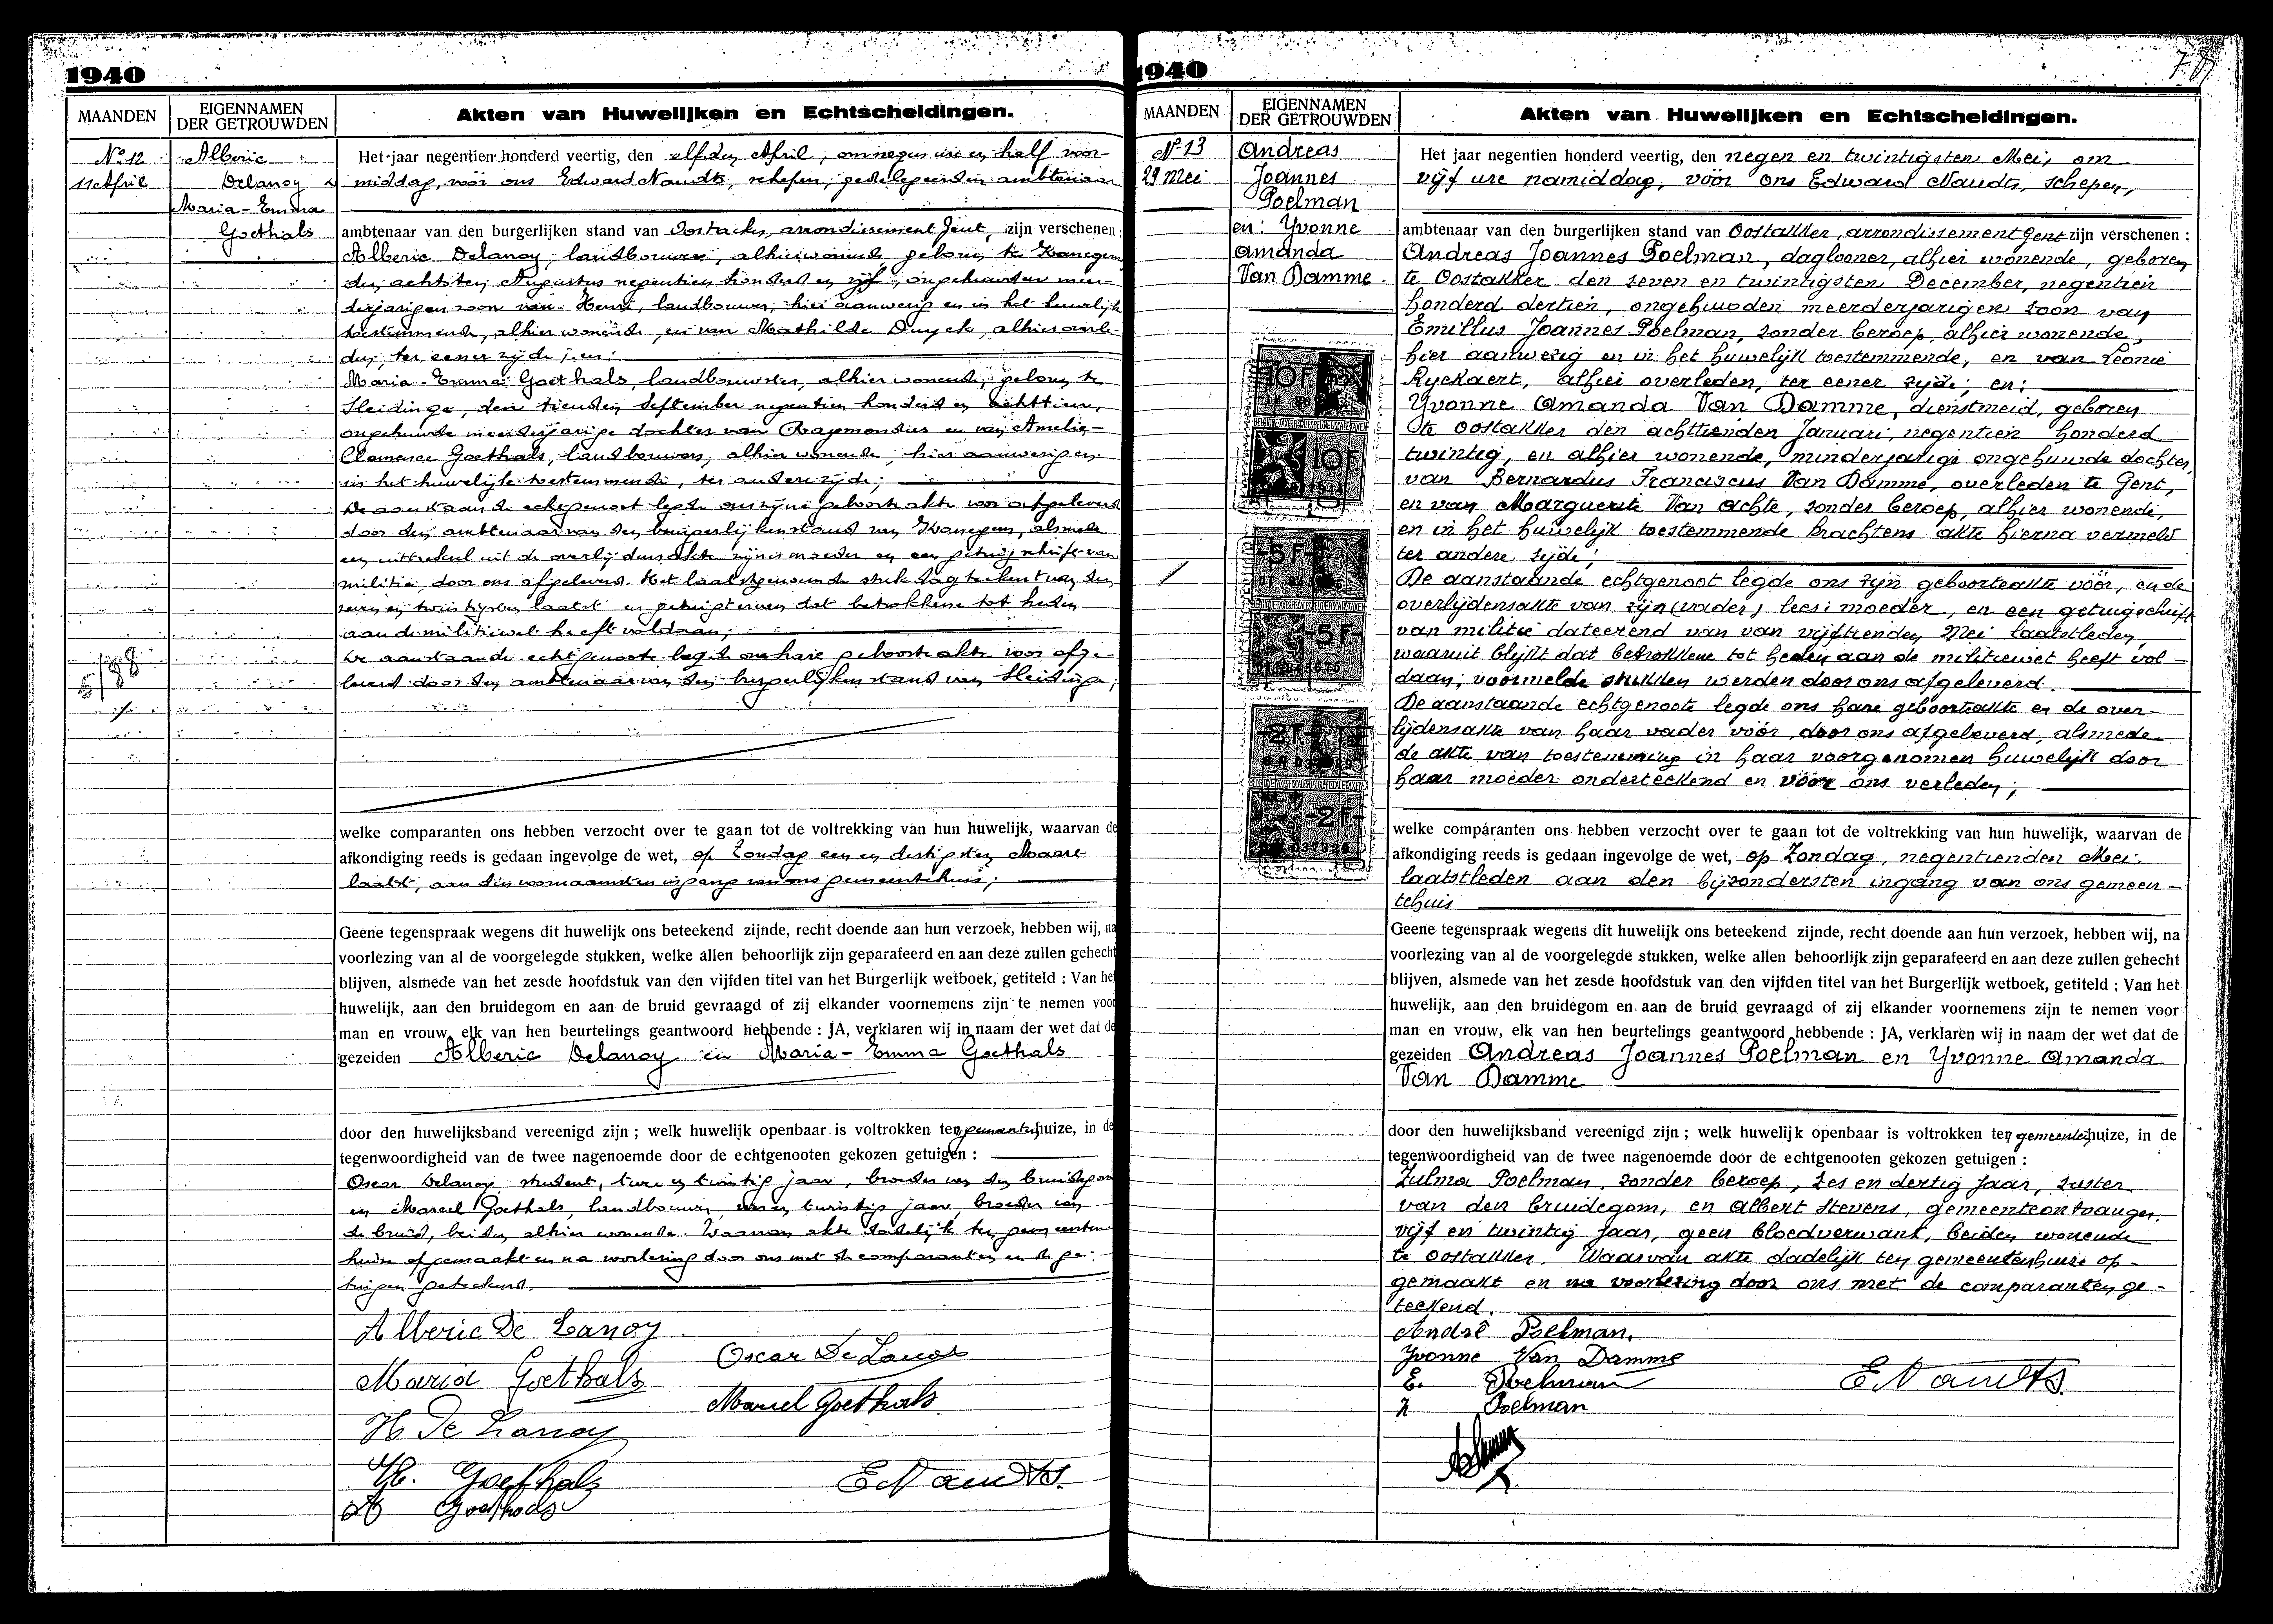 1940
MAANDEN
EIGENNAMEN
DER GETROUWDEN
Akten van Huwelijken en Echtscheidingen.
No 12
11 April
Alberic
Delanoy &
Maria-Emma
Goethals
Het jaar negentien honderd veertig, den elfden April, om negen ure en half voor-
middag, voor ons Edward Naudts, schepen, gedelegeerden ambtenaar
ambtenaar van den burgerlijken stand van Oostacker, arrondissement Gent, zijn verschenen:
Alberic Delanoy, landbouwer, alhier wonende, geboren te Zwanegem
den achtsten Augustus negentien honderd en vijf, ongehuwden meer-
derjarigen zoon van Henri, landbouwer, hier aanwezig en in het huwelijk
toestemmende, alhier wonende, en van Mathilde Duyck, alhier overle-
den, ter eener zijde; en:
Maria-Emma Goethals, landbouwster, alhier wonende, geboren te
Sleidinge, den tienden September negentien honderd en achttien,
ongehuwde meerderjarige dochter van Raymondus en van Amelie-
Clemence Goethals, landbouwers, alhier wonende, hier aanwezig en
in het huwelijk toestemmende, ter andere zijde;
De aanstaande echtgenoot legde ons zijne geboorteakte voor afgeleverd
door den ambtenaar van den burgerlijken stand van Zwanegem, alsmede
een uittreksel uit de overlijdensakte zijner moeder en een getuigschrift van
militie, door ons afgeleverd. Het laatstgenoemde stuk dagteekent van den
zeven en twintigsten laatst en getuigt ervan dat betrokkene tot heden
aan de militiewet heeft voldaan;
De aanstaande echtgenoote legde ons hare geboorteakte voor afge-
leverd door den ambtenaar van den burgerlijken stand van Sleidinge;
5/88
welke comparanten ons hebben verzocht over te gaan tot de voltrekking van hun huwelijk, waarvan de
afkondiging reeds is gedaan ingevolge de wet, op Zondag een en dertigsten Maart
laatst, aan den voornaamsten ingang van ons gemeentehuis;
Geene tegenspraak wegens dit huwelijk ons beteekend zijnde, recht doende aan hun verzoek, hebben wij, na
voorlezing van al de voorgelegde stukken, welke allen behoorlijk zijn geparafeerd en aan deze zullen gehecht
blijven, alsmede van het zesde hoofdstuk van den vijfden titel van het Burgerlijk wetboek, getiteld : Van het
huwelijk, aan den bruidegom en aan de bruid gevraagd of zij elkander voornemens zijn te nemen voor
man en vrouw, elk van hen beurtelings geantwoord hebbende : JA, verklaren wij in naam der wet dat de
gezeiden Alberic Delanoy en Maria-Emma Goethals
door den huwelijksband vereenigd zijn ; welk huwelijk openbaar is voltrokken ten gemeentehuize, in de
tegenwoordigheid van de twee nagenoemde door de echtgenooten gekozen getuigen :
Oscar Delanoy, student, twee en twintig jaar, broeder van den bruidegom
en Marcel Goethals, landbouwer, een en twintig jaar, broeder van
de bruid, beiden alhier wonende. Waarvan akte dadelijk ten gemeenten-
huize opgemaakt en na voorlezing door ons met de comparanten en de ge-
tuigen geteekend.
Alberic De Lanoy
Oscar De Lanoy
Maria Goethals
Marcel Goethals
H De Lanoy
Goethals
E Naudts.
Goethals
1940
MAANDEN
EIGENNAMEN
DER GETROUWDEN
Akten van Huwelijken en Echtscheidingen.
No 13
29 Mei
Andreas
Joannes
Poelman
en: Yvonne
Amanda
Van Damme.
10F
10F
-5F-
-5F-
-2F-
-2F-
Het jaar negentien honderd veertig, den negen en twintigsten Mei, om
vijf ure namiddag, vóór ons Edward Naudts, schepen,
ambtenaar van den burgerlijken stand van Oostakker, arrondissement Gent zijn verschenen :
Andreas Joannes Poelman, daglooner, alhier wonende, geboren
te Oostakker den zeven en twintigsten December, negentien
honderd dertien, ongehuwden meerderjarigen zoon van
Emilius Joannes Poelman, zonder beroep, alhier wonende,
hier aanwezig en in het huwelijk toestemmende, en van Leonie
Ryckaert, alhier overleden, ter eener zijde; en:
Yvonne Amanda Van Damme, dienstmeid, geboren
te Oostakker den achttienden Januari, negentien honderd
twintig, en alhier wonende, minderjarige ongehuwde dochter,
van Bernardus Franciscus Van Damme, overleden te Gent,
en van Marguerite Van Achte, zonder beroep, alhier wonende,
en in het huwelijk toestemmende krachtens akte hierna vermeld
ter andere zijde;
De aanstaande echtgenoot legde ons zijn geboorteakte vóór, en de
overlijdensakte van zijn (vader) lees: moeder, en een getuigschrift
van militie dateerend van van vijftienden Mei laatstleden,
waaruit blijkt dat betrokkene tot heden aan de militiewet heeft vol-
daan; voormelde stukken werden door ons afgeleverd.
De aanstaande echtgenoote legde ons hare geboorteakte en de over-
lijdensakte van haar vader vóór, door ons afgeleverd, alsmede
de akte van toestemming in haar voorgenomen huwelijk door
haar moeder onderteekend en vóór ons verleden;
welke comparanten ons hebben verzocht over te gaan tot de voltrekking van hun huwelijk, waarvan de
afkondiging reeds is gedaan ingevolge de wet, op Zondag, negentienden Mei,
laatstleden aan den bijzondersten ingang van ons gemeen-
tehuis
Geene tegenspraak wegens dit huwelijk ons beteekend zijnde, recht doende aan hun verzoek, hebben wij, na
voorlezing van al de voorgelegde stukken, welke allen behoorlijk zijn geparafeerd en aan deze zullen gehecht
blijven, alsmede van het zesde hoofdstuk van den vijfden titel van het Burgerlijk wetboek, getiteld : Van het
huwelijk, aan den bruidegom en aan de bruid gevraagd of zij elkander voornemens zijn te nemen voor
man en vrouw, elk van hen beurtelings geantwoord hebbende : JA, verklaren wij in naam der wet dat de
gezeiden Andreas Joannes Poelman en Yvonne Amanda
Van Damme
door den huwelijksband vereenigd zijn ; welk huwelijk openbaar is voltrokken ten gemeentehuize, in de
tegenwoordigheid van de twee nagenoemde door de echtgenooten gekozen getuigen :
Zulma Poelman, zonder beroep, zes en dertig jaar, zuster
van den bruidegom, en Albert Stevens, gemeenteontvanger,
vijf en twintig jaar, geen bloedverwant, beiden wonende
te Oostakker. Waarvan akte dadelijk ten gemeentenhuize op-
gemaakt en na voorlezing door ons met de comparanten ge-
teekend.
André Poelman.
Yvonne Van Damme
E. Poelman
E Naudts.
Z Poelman